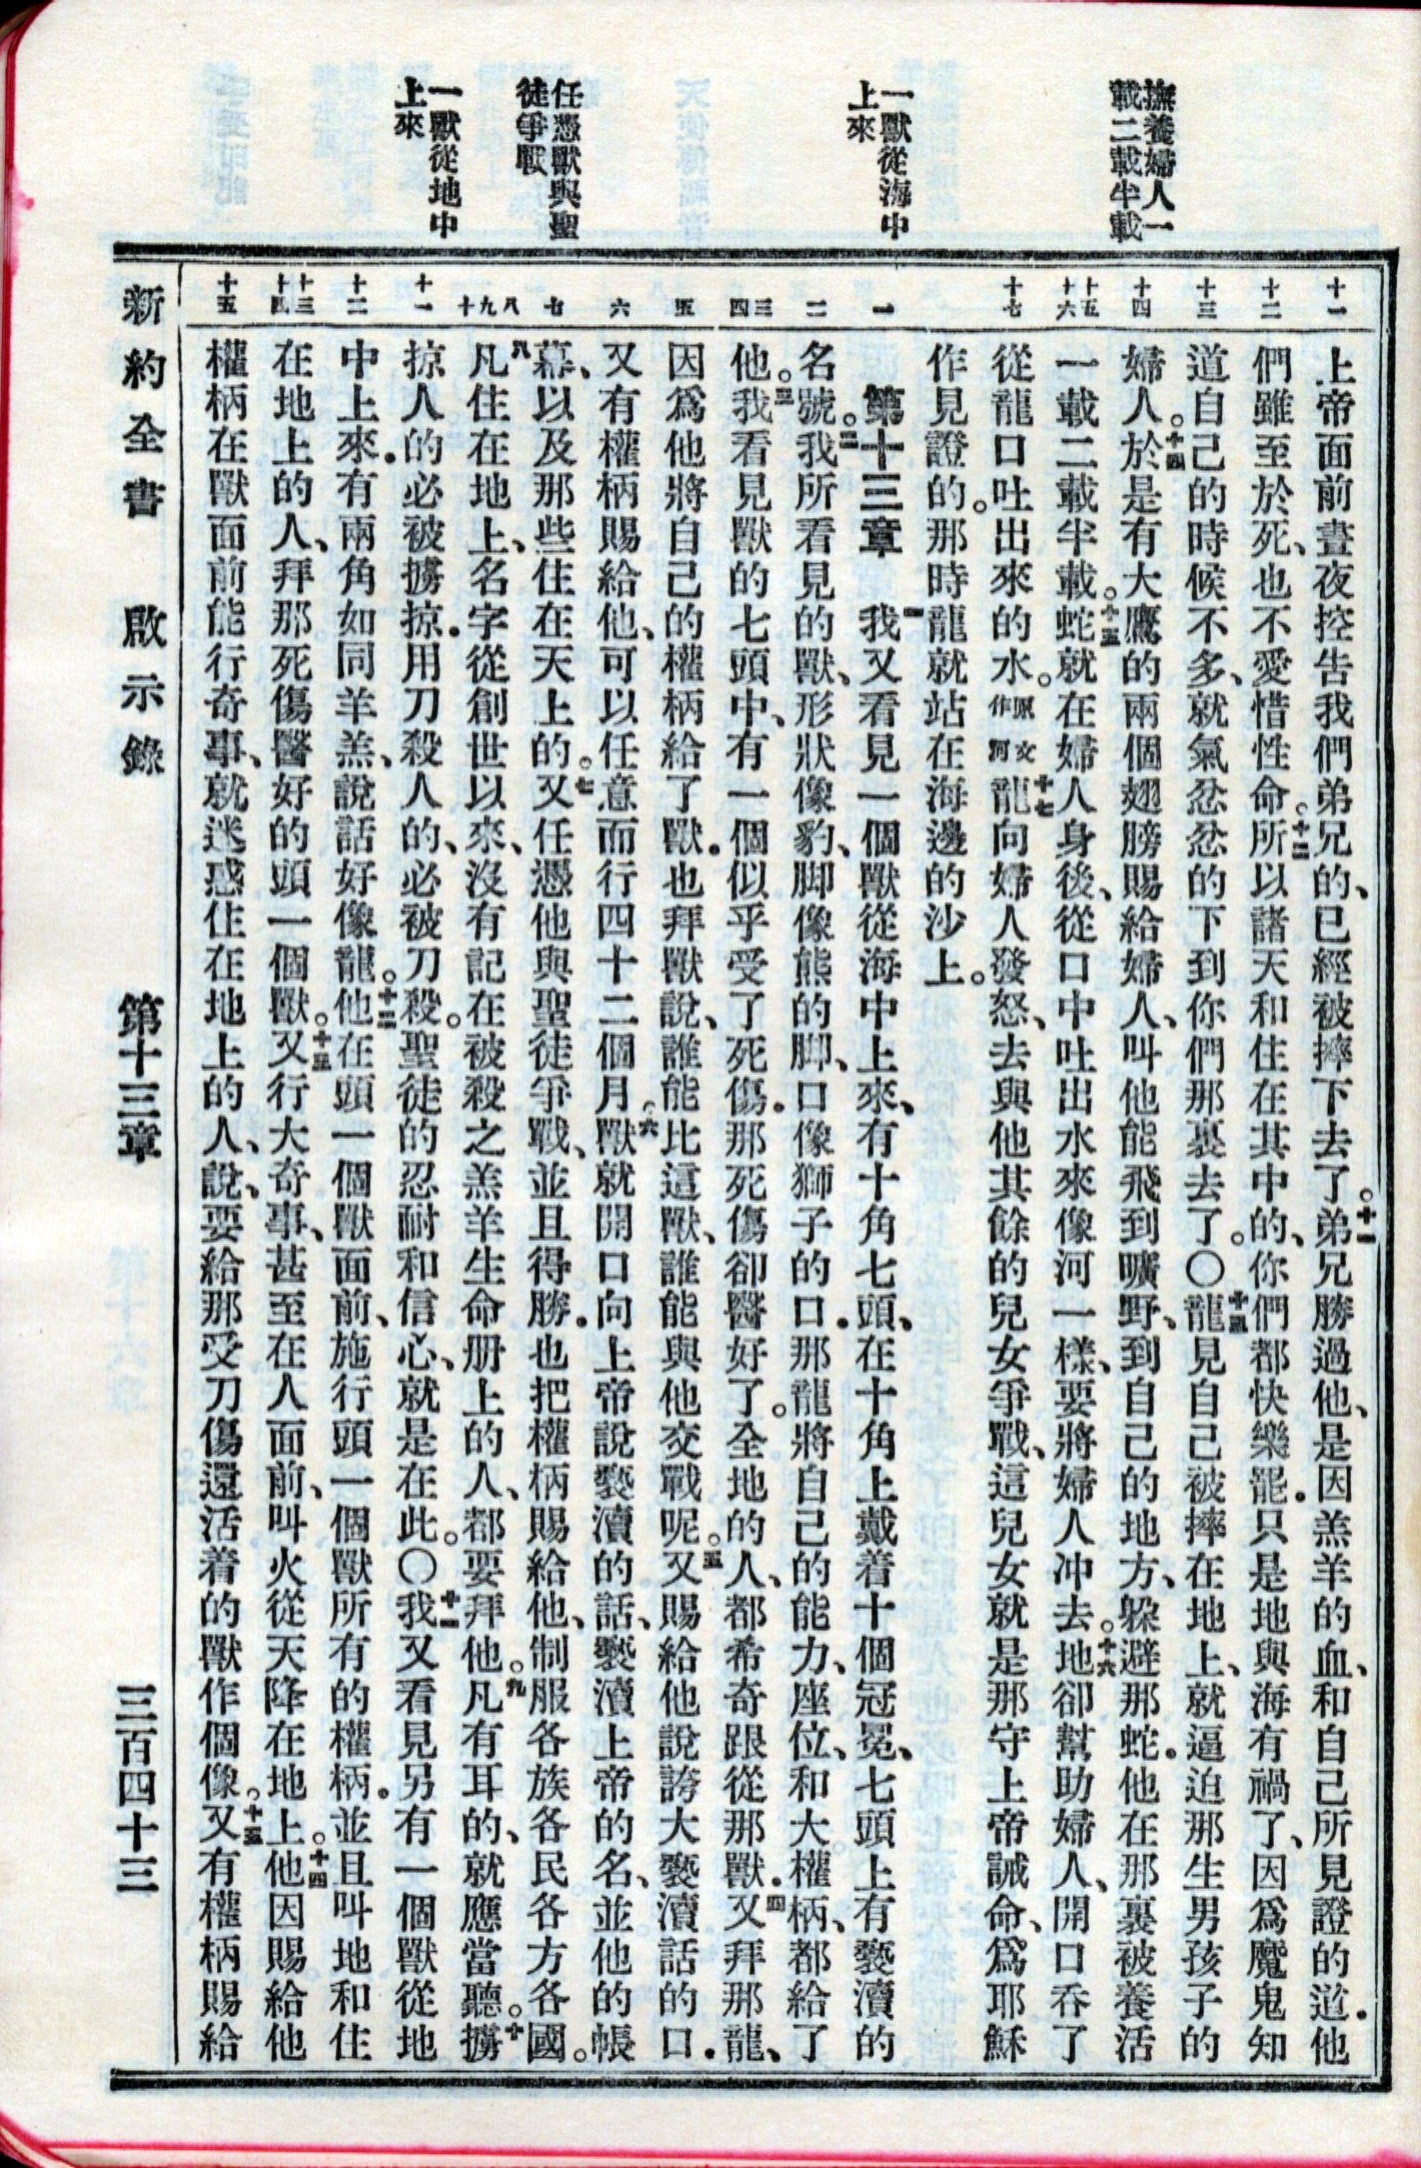 撫養婦人一
載二載半載
一獸從海中
上來
任憑獸與聖
徒爭戰
一獸從地中
上來
十一
十二
十三
十四
十五
十六
十七
一
二
三
四
五
六
七
八
九
十
十一
十二
十三
十四
十五
上帝面前晝夜控告我們弟兄的、已經被摔下去了。十一弟兄勝過他、是因羔羊的血、和自己所見證的道．他
們雖至於死、也不愛惜性命。十二所以諸天和住在其中的、你們都快樂罷．只是地與海有禍了、因爲魔鬼知
道自己的時候不多、就氣忿忿的下到你們那裏去了。〇十三龍見自己被摔在地上、就逼迫那生男孩子的
婦人。十四於是有大鷹的兩個翅膀賜給婦人、叫他能飛到曠野、到自己的地方、躲避那蛇．他在那裏被養活
一載二載半載。十五蛇就在婦人身後、從口中吐出水來像河一樣、要將婦人冲去。十六地卻幫助婦人、開口吞了
從龍口吐出來的水。原文作河十七龍向婦人發怒、去與他其餘的兒女爭戰、這兒女就是那守上帝誡命、爲耶穌
作見證的。那時龍就站在海邊的沙上。
第十三章 一我又看見一個獸從海中上來、有十角七頭、在十角上戴着十個冠冕、七頭上有褻瀆的
名號。二我所看見的獸、形狀像豹、脚像熊的脚、口像獅子的口．那龍將自己的能力、座位、和大權柄、都給了
他。三我看見獸的七頭中、有一個似乎受了死傷．那死傷卻醫好了。全地的人、都希奇跟從那獸．四又拜那龍、
因爲他將自己的權柄給了獸．也拜獸說、誰能比這獸、誰能與他交戰呢。五又賜給他說誇大褻瀆話的口．
又有權柄賜給他、可以任意而行四十二個月。六獸就開口向上帝說褻瀆的話、褻瀆上帝的名、並他的帳
幕、以及那些住在天上的。七又任憑他與聖徒爭戰、並且得勝．也把權柄賜給他、制服各族各民各方各國。
八凡住在地上、名字從創世以來、沒有記在被殺之羔羊生命册上的人、都要拜他。九凡有耳的、就應當聽。十擄
掠人的必被擄掠．用刀殺人的、必被刀殺。聖徒的忍耐和信心、就是在此。〇十一我又看見另有一個獸從地
中上來．有兩角如同羊羔、說話好像龍。十二他在頭一個獸面前、施行頭一個獸所有的權柄．並且叫地和住
在地上的人、拜那死傷醫好的頭一個獸。十三又行大奇事、甚至在人面前、叫火從天降在地上。十四他因賜給他
權柄在獸面前能行奇事、就迷惑住在地上的人、說、要給那受刀傷還活着的獸作個像。十五又有權柄賜給
新約全書 啟示錄 第十三章 三百四十三